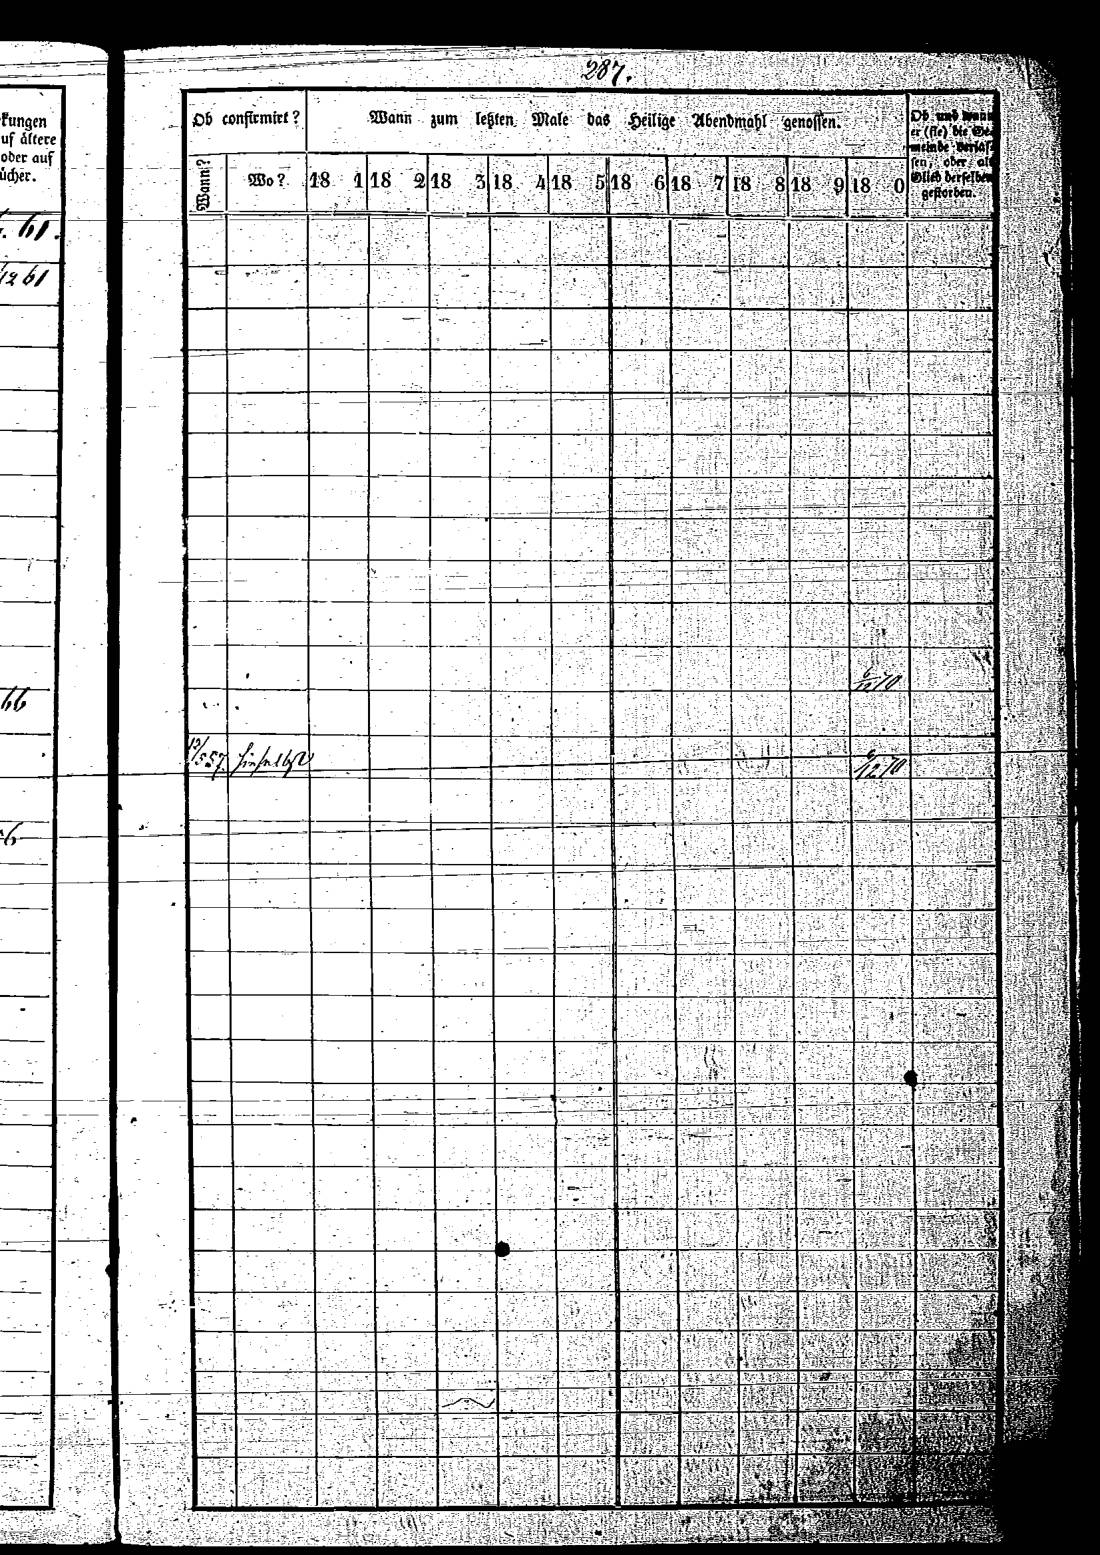 287.
kungen
uf ältere
oder auf
ücher.
61.
12 61
66
6
Ob confirmirt?
Wann zum letzten Male das Heilige Abendmahl genossen.
Ob und wann
er (sie) die Ge-
meinde verlas-
sen, oder als
Glied derselben
gestorben.
Wann?
Wo?
18 1
18 2
18 3
18 4
18 5
18 6
18 7
18 8
18 9
18 0
6/12 70
13/5 57. hieselbst
6/12 70